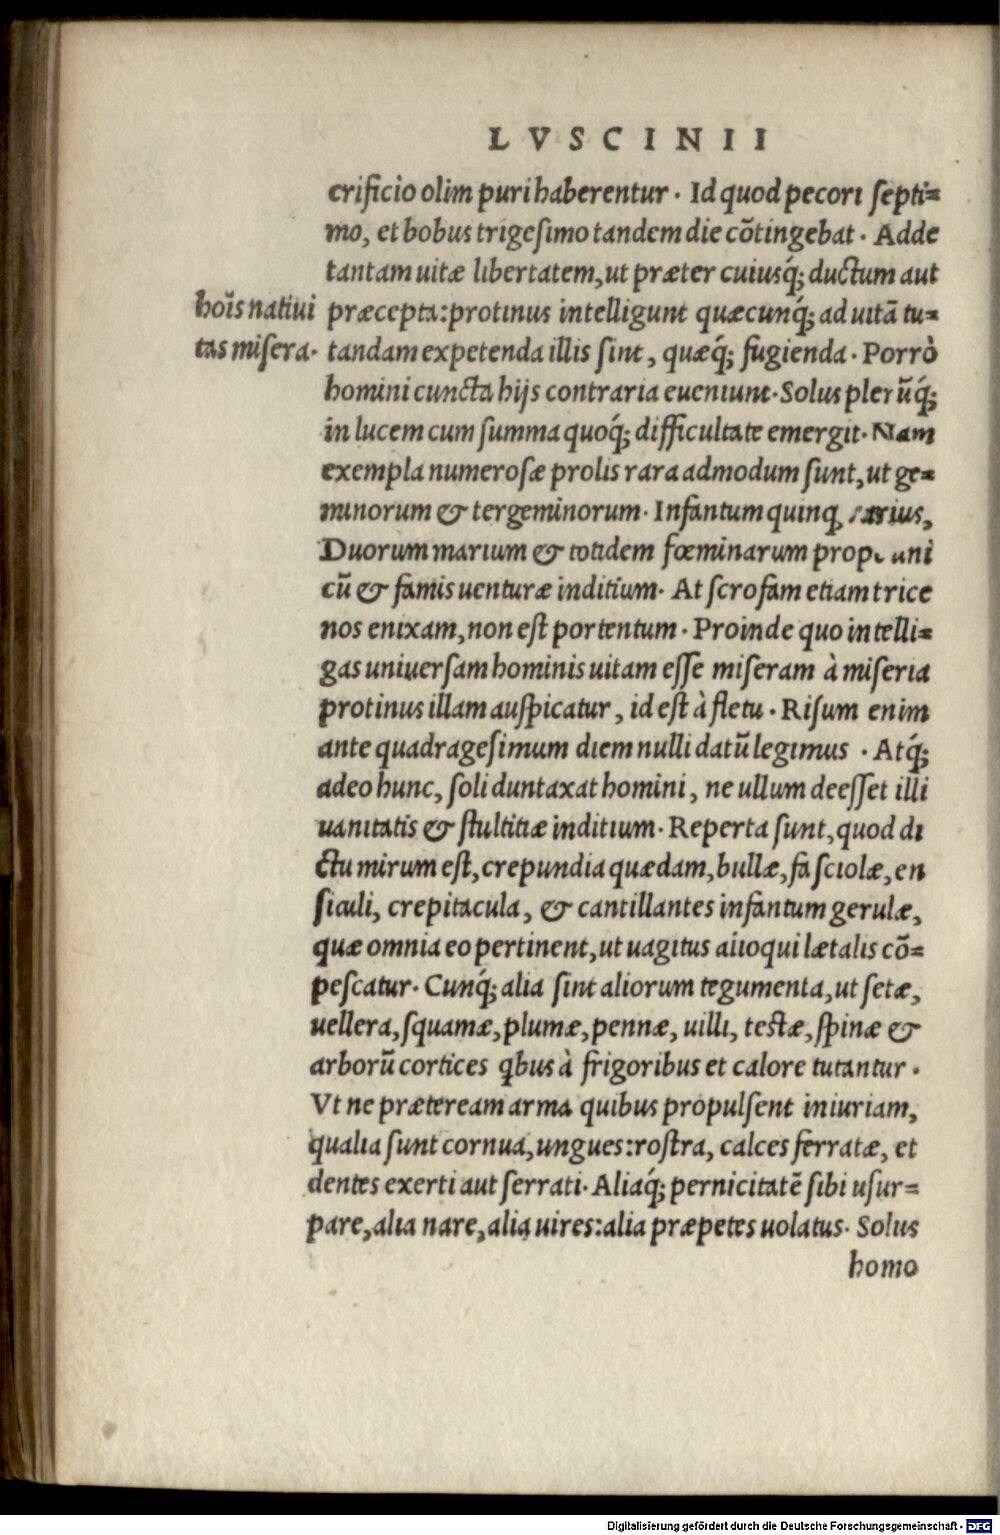 LVSCINII
crificio olim puri haberentur. Id quod pecori septi=
mo, et bobus trigesimo tandem die cõtingebat. Adde
tantam uitæ libertatem, ut præter cuiusq́; ductum aut
hoĩs nativi
tas misera.
præcepta: protinus intelligunt quæcunq́; ad uitã tu=
tandam expetenda illis sint, quæq́; fugienda. Porrò
homini cuncta hijs contraria eveniunt. Solus plerũq́;
in lucem cum summa quoq́; difficultate emergit. Nam
exempla numerosæ prolis rara admodum sunt, ut ge=
minorum & tergeminorum. Infantum quinq
Duorum marium & totidem fœminarum
cũ & famis uenturæ inditium. At scrofam etiam trice
nos enixam, non est portentum. Proinde quo intelli=
gas universam hominis uitam esse miseram à miseria
protinus illam auspicatur, id est à fletu. Risum enim
ante quadragesimum diem nulli datũ legimus. Atq́;
adeo hunc, soli duntaxat homini, ne ullum deesset illi
uanitatis & stultitiæ inditium. Reperta sunt, quod di
ctu mirum est, crepundia quædam, bullæ, fasciolæ, en
siculi, crepitacula, & cantillantes infantum gerulæ,
quæ omnia eo pertinent, ut uagitus alioqui lætalis cõ=
pescatur. Cunq́; alia sint aliorum tegumenta, ut setæ,
uellera, squamæ, plumæ, pennæ, uilli, testæ, spinæ &
arborũ cortices qbus à frigoribus et calore tutantur.
Vt ne præteream arma quibus propulsent iniuriam,
qualia sunt cornua, ungues: rostra, calces ferratæ, et
dentes exerti aut serrati. Aliaq́; pernicitatẽ sibi usur=
pare, alia nare, alia uires: alia præpetes uolatus. Solus
homo
Digitalisierung gefördert durch die Deutsche Forschungsgemeinschaft - DFG